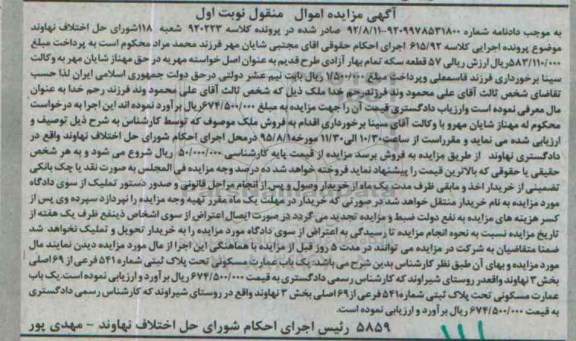 آگهی مزایده اموال منقول نوبت اول
به موجب دادنامه شماره ۹۲۰۹۹۷۸۵۳۱۸۰۰-۹۲/۸/۱۱ صادر شده در پرونده کلاسه ۹۲۰۲۲۳ شعبه ۱۱۸شورای حل اختلاف نهاوند
موضوع پرونده اجرایی کلاسه ۶۱۵/۹۲ اجرای احکام حقوقی اقای مجتبی شایان مهر فرزند محمد مراد محکوم است به پرداخت مبلغ
۵۸۳/۱۱۰/۰۰۰ریال ارزش ریالی ۵۷ قطعه سکه تمام بهار آزادی طرح قدیم به عنوان اصل خواسته مهریه در حق مهناز شایان مهر به وکالت
سینا برخورداری فرزند قاسمعلی وپرداخت مبلغ ۱/۵۰۰/۰۰۰ ریال بابت نیم عشر دولتی درحق دولت جمهوری اسلامی ایران لذا حسب
تقاضای شخص ثالث آقای علی محمود وند فرزند رحم خدا ملک ذیل که شخص ثالث آقای علی محمود وند فرزند رحم خدا به عنوان
مال معرفی نموده است وارزیاب دادگستری قیمت آن را جهت مزایده به مبلغ ۶۷۴/۵۰۰/۰۰۰ریال برآورد نموده اند این اجرا به درخواست
محکوم له مهناز شایان مهر و با وکالت آقای سینا برخورداری اقدام به فروش ملک موصوف که توسط کارشناس به شرح ذیل توصیف و
ارزیابی شده می نماید و مقرراست از ساعت۱۰/۳۰ الی۱۱/۳۰ مورخه۹۵/۸/۱ درمحل اجرای احکام شورای حل اختلاف نهاوند واقع در
دادگستری نهاوند از طریق مزایده به فروش برسد مزایده از قیمت پایه کارشناسی ۵۰/۰۰۰/۰۰۰ ریال شروع می شود و به هر شخص
حقیقی یا حقوقی که بالاترین قیمت را پیشنهاد نماید فروخته خواهد شد ده درصد وجه مزایده فی المجلس به صورت نقد یا چک بانکی
تضمینی از خریدار اخذ و مابقی ظرف مدت یک ماه از خریدار وصول و پس از انجام مراحل قانونی و صدور دستور تملیک از سوی دادگاه
مورد مزایده به نام خریدار منتقل خواهد شد در صورتی که خریدار در مهلت یک ماه مقرر تهیه وجه مزایده را نپردازد سپرده وی پس از
کسر هزینه های مزایده به نفع دولت ضبط و مزایده تجدید می گردد در صورت ایصال اعتراض از سوی اشخاص ذینفع ظرف یک هفته از
تاریخ مزایده نسبت به نحوه انجام مزایده تا رسیدگی به اعتراض از سوی دادگاه مورد مزایده را به خریدار تحویل و تملیک نخواهد شد
ضمنا متقاضیان به شرکت در مزایده می توانند در مدت ۵ روز قبل از مزایده با هماهنگی این اجرا از مال مورد مزایده دیدن نمایند مال
مورد مزایده و بهای آن طبق نظر کارشناس بدین شرح می باشد: یک باب عمارت مسکونی تحت پلاک ثبتی شماره ۵۴۱ فرعی از ۶۹اصلی
بخش ۳ نهاوند واقعدر روستای شیراوند که کارشناس رسمی دادگستری به قیمت ۶۷۴/۵۰۰/۰۰۰ ریال برآورد و ارزیابی نموده است.یک باب
عمارت مسکونی تحت پلاک ثبتی شماره۵۴۱ فرعی از۶۹اصلی بخش ۳ نهاوند واقع در روستای شیراوند که کارشناس رسمی دادگستری
به قیمت ۶۷۴/۵۰۰/۰۰۰ ریال برآورد و ارزیابی نموده است.
۵۸۵۹ رئیس اجرای احکام شورای حل اختلاف نهاوند – مهدی پور